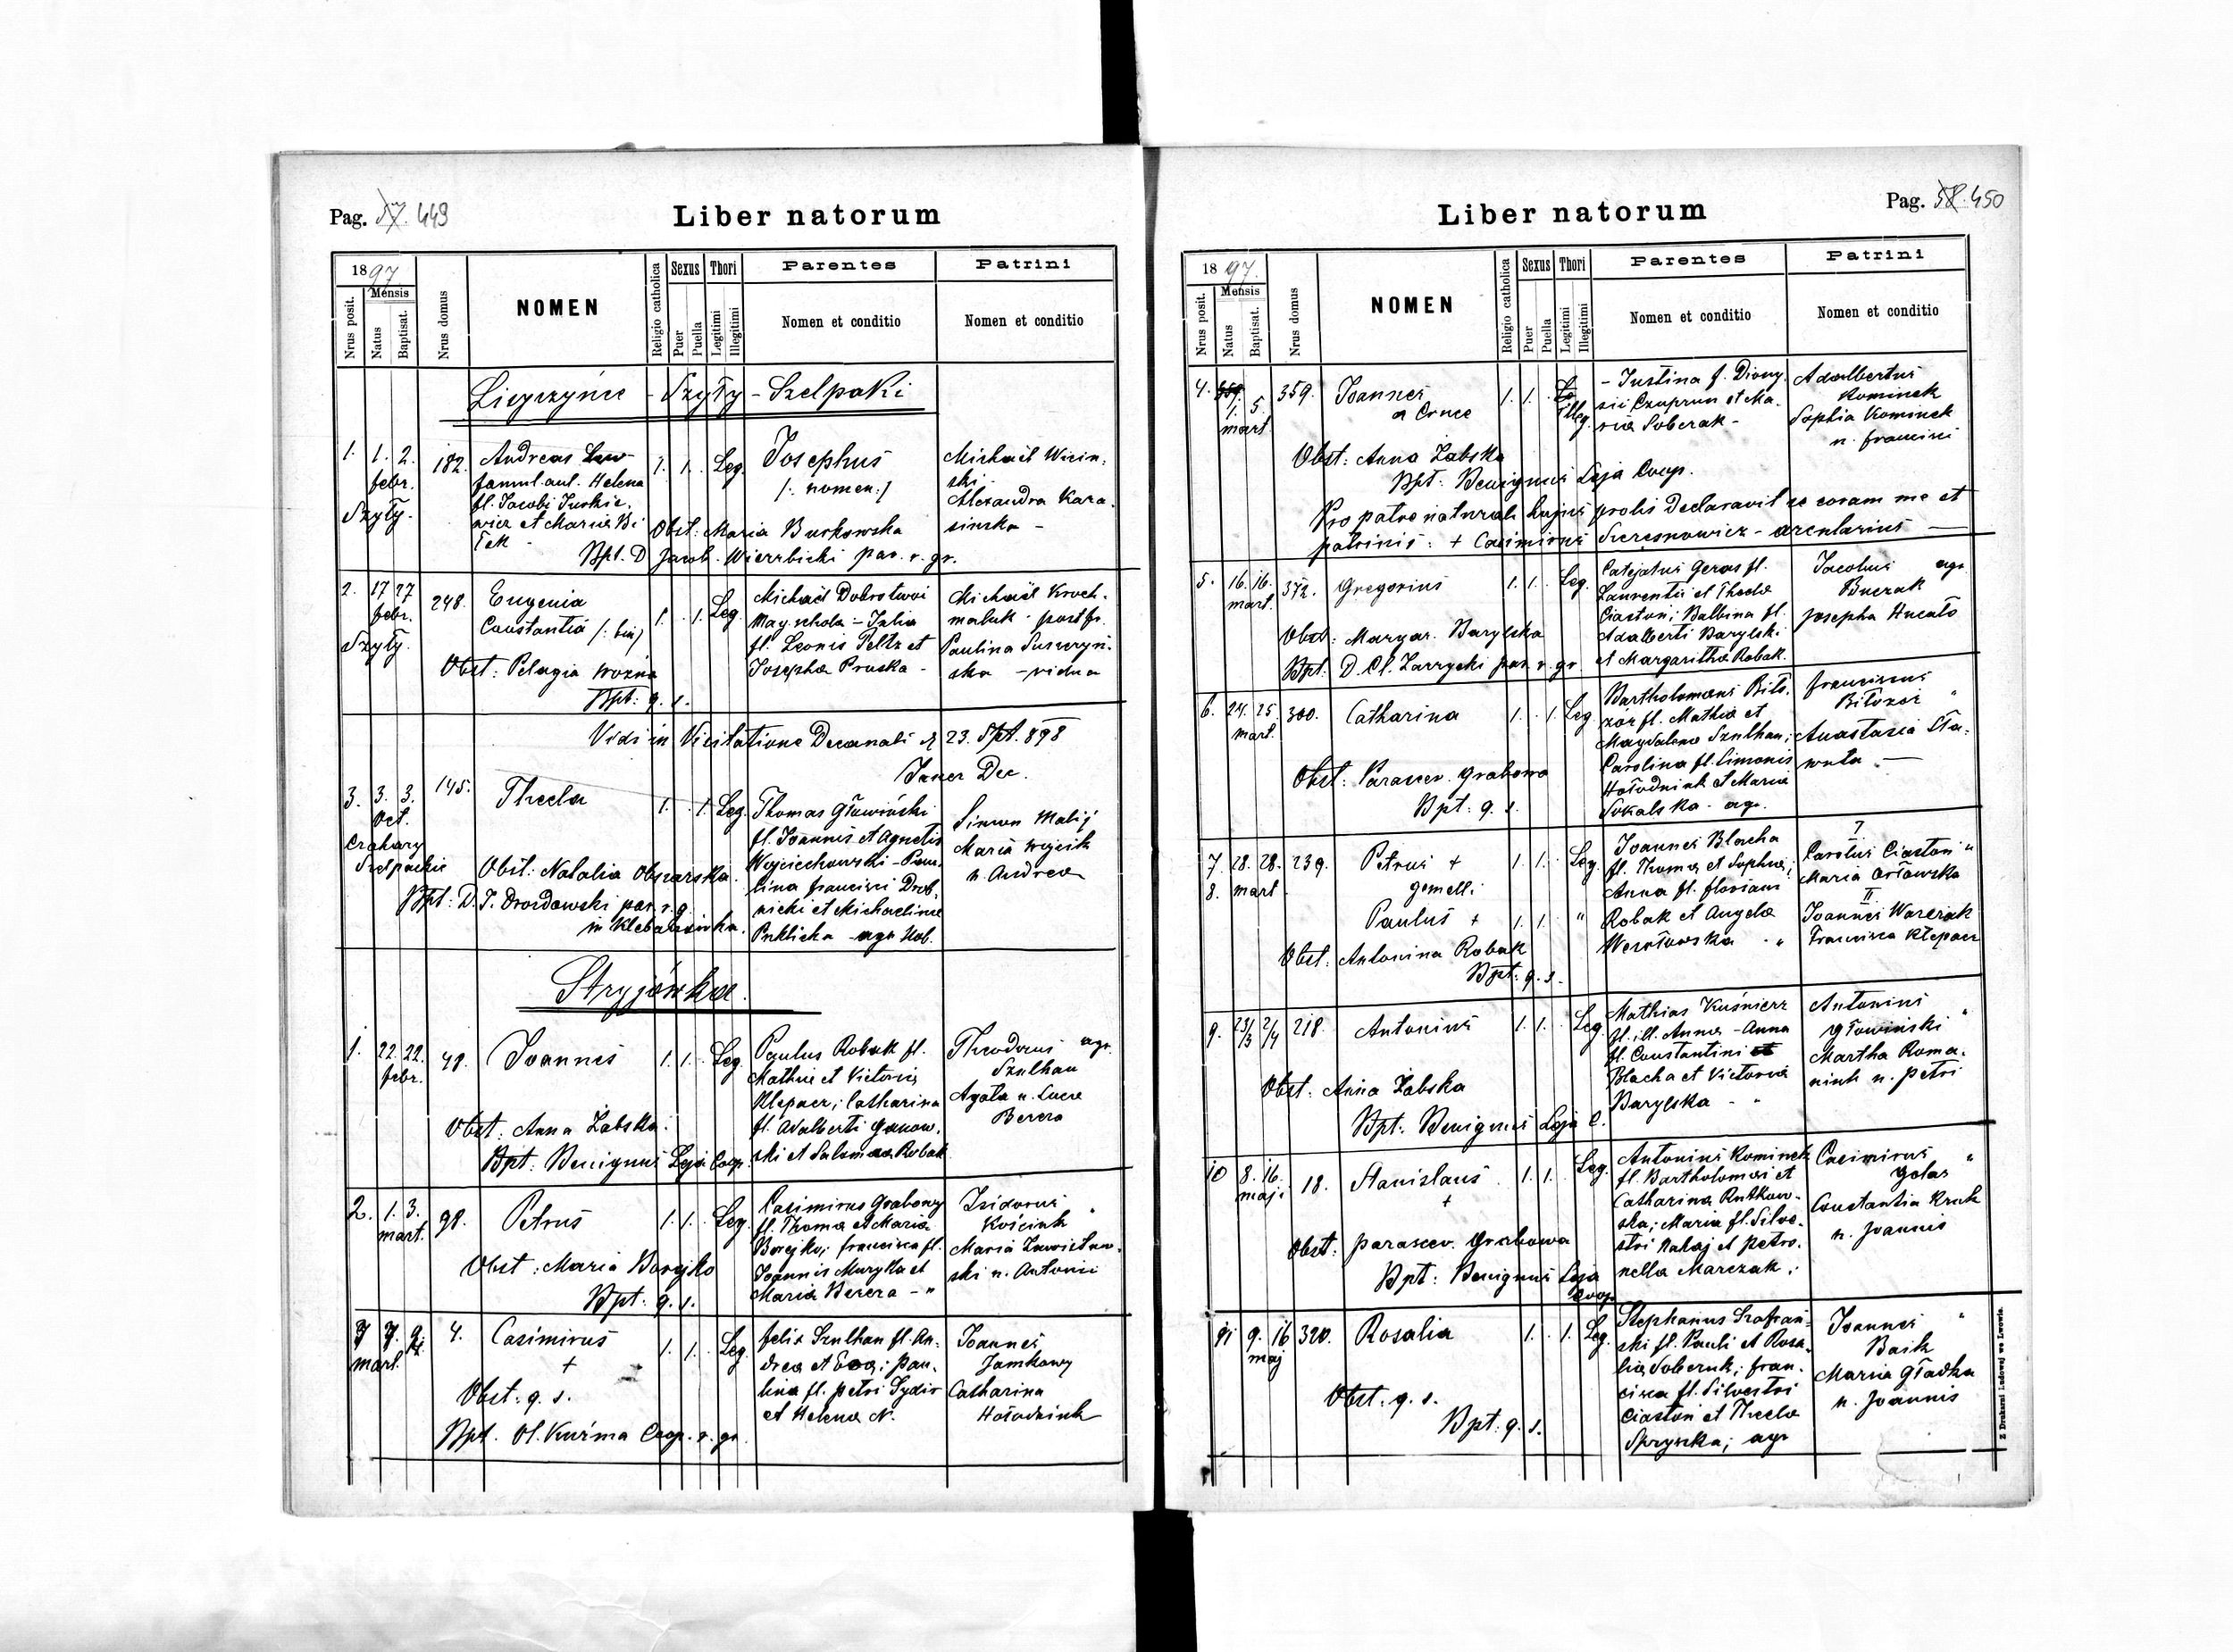 Pag. 57. 449
Liber natorum
1897.
Mensis
Nrus posit.
Natus
Baptisat.
Nrus domus
NOMEN
Religio catholica
Sexus
Puer
Puella
Thori
Legitimi
Illegitimi
Parentes
Nomen et conditio
Patrini
Nomen et conditio
Szyły - Szelpaki
1. 1. 2. febr. 182. Andreas 1. 1. Leg. Josephus Michaël
Szyły. famul. aul. Helena /: nomen :/ ski
fl. Jacobi Alexandra Kara-
et Maria Obst: Maria Burkowska sinska -
Bpt. D Jacob. Wierzbicki par. r. gr.
2. 17 27 febr. 248. Eugenia 1. 1. Leg. Michaël Michaël Kroch-
Szyły. Constantia /: bin/ Mag. schola - Julia maluk
fl. Leonis Peltz et Paulina
Obst: Pelagia Woźna Josepha Pruska - ska - vidua
Bpt: q. s.
Vidi in Visitatione Decanali d. 23. Spt. 898
Dec.
3. 3. 3. Oct. 145. Thecla 1. 1. Leg. Thomas Głowiński Simon Malij
fl. Joannis et Agnetis Maria Wojcik
Obst: Natalia Wojciechowski - Pau- n. Andrea
Bpt: D. J. Drozdowski par. r. g. lina Francisci Drob-
in nicki et Michaelinae
agr.
Stryjówka.
1. 22. 22. febr. 48. Joannes 1. 1. Leg. Paulus Robak fl. Theodorus agr.
Mathiae et Victoria Szulhan
Klepacz; Catharina Agata u. Lucae
Obst: Anna Żabska. fl. Adalberti Bereza
Bpt: Benignus Leja Coop. ski et Salomea Robak
2. 1. 3. mart. 98. Petrus 1. 1. Leg. Casimirus Grabowy Isidorus "
fl. Thomae et Maria Kościuk
Obst: Maria Borejko Borejko; Francisca fl. Maria
Joannis Muryłła et ski u. Antonii
Bpt: q. s. Maria Bereza - "
3 7. 9. mart. 4. Casimirus 1. 1. Leg. Felix Szulhan fl. An- Joannes
+ dreae et Eva; Pau- Zamkowy
Obst: q. s. lina fl. Petri Sydir Catharina
Bpt. Ol. Kuźma Coop. r. gr. et Helena N. Hołodniuk
Pag. 58. 450
Liber natorum
1897.
Mensis
Nrus posit.
Natus
Baptisat.
Nrus domus
NOMEN
Religio catholica
Sexus
Puer
Puella
Thori
Legitimi
Illegitimi
Parentes
Nomen et conditio
Patrini
Nomen et conditio
4. 1. 5. mart. 359. Joannes 1. 1. Illeg. - Justina f. Diony- Adalbertus
a Cruce sii Czuprun et Ma- Kominek
ria Soberak - Sophia Kominek
Obst: Anna Żabska u. Francisci
Bpt: Benignus Leja Coop.
Pro patre naturali hujus prolis declaravit se coram me et
patrinis: + Casimirus - arendarius -
5. 16. 16. mart. 372. Gregorius 1. 1. Leg. Cajetanus Geras fl. Jacobus agr.
Laurentii et Thecla Buczak
Ciastoń; Balbina fl. Josepha
Obst: Margar. Barylska Adalberti Barylski
Bpt: D. Cl. Zarzycki par. r. gr. et Margaritha Robak.
6. 24. 25. mart. 300. Catharina 1. 1. Leg. Bartholomaeus Biło- Franciscus
zór fl. Mathiae et Biłozór "
Magdalena Szulhan; Anastasia
Obst: Parascev. Grabowa Carolina fl. Simonis
Bpt: q. s. Hołodniuk et Maria
Sokalska - agr.
7. 28. 28. 239. Petrus + 1. 1. Leg. Joannes Blacha I
8. mart. gemelli fl. Thomae et Sophia; Carolus Ciastoń "
Anna fl. Floriani Maria Orłowska
Paulus + 1. 1. " Robak et Angela II
Obst: Antonina Robak Joannes
Bpt: q. s. Francisca Klepacz
9. 23/3 2/4 218. Antonius 1. 1. Leg. Mathias Kuśnierz Antonius "
fl. ill. Anna - Anna Głowiński
fl. Constantini Martha Roma-
Obst: Anna Żabska Blacha et Victoria niuk u. Petri
Bpt: Benignus Leja C. Barylska - "
10 8. 16. maji 18. Stanislaus 1. 1. Leg. Antonius Kominek Casimirus "
+ fl. Bartholomaei et
Catharina Rutkow- Constantia Kruk
Obst: Parascev. Grabowa ska; Maria fl. Silve- u. Joannis
Bpt: Benignus Leja Coop. stri et Petro-
nella Marczak;
11 9. 16 maj 320. Rosalia 1. 1. Leg. Stephanus Joannes "
ski fl. Pauli et Rosa- Baik
lia Soberak; Fran- Maria Gładka
Obst. q. s. cisca fl. Silvestri u. Joannis
Bpt: q. s. Ciastoń et Thecla
agr
Z Drukarni Ludowej we Lwowie.